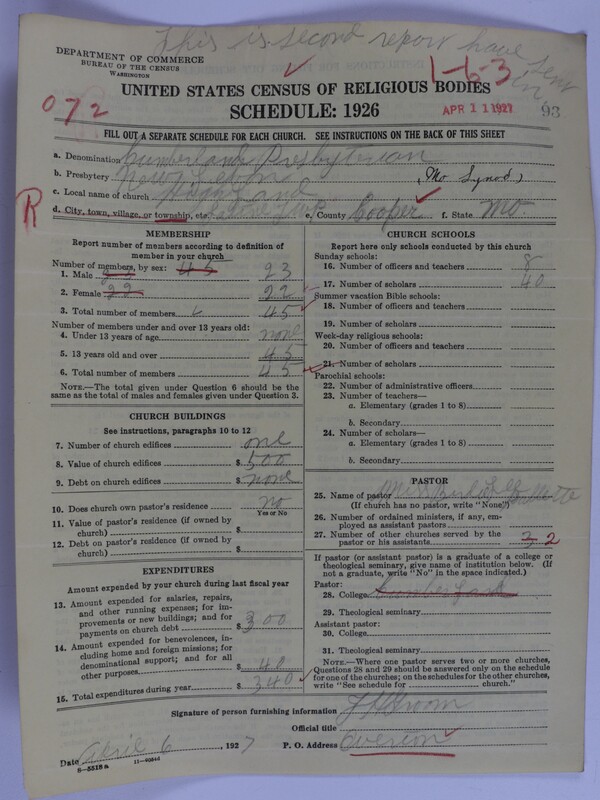 This is second report have sent in
DEPARTMENT OF COMMERCE
BUREAU OF THE CENSUS
WASHINGTON
1-6-3
UNITED STATES CENSUS OF RELIGIOUS BODIES
072
SCHEDULE: 1926
APR 11 1927
93
FILL OUT A SEPARATE SCHEDULE FOR EACH CHURCH. SEE INSTRUCTIONS ON THE BACK OF THIS SHEET
a. Denomination Cumberland Presbyterian
b. Presbytery New Lebon (Mo Synod)
c. Local name of church
R
d. City, town, village, or township, etc. e. County Cooper f. State Mo.
MEMBERSHIP
Report number of members according to definition of member in your church
Number of members, by sex: 45
1. Male 23
2. Female 22 22
3. Total number of members 45
Number of members under and over 13 years old:
4. Under 13 years of age none
5. 13 years old and over 45
6. Total number of members 45
NOTE.—The total given under Question 6 should be the same as the total of males and females given under Question 3.
CHURCH BUILDINGS
See instructions, paragraphs 10 to 12
7. Number of church edifices one
8. Value of church edifices $ 500
9. Debt on church edifices $ none
10. Does church own pastor's residence? no
Yes or No
11. Value of pastor's residence (if owned by church) $
12. Debt on pastor's residence (if owned by church) $
EXPENDITURES
Amount expended by your church during last fiscal year
13. Amount expended for salaries, repairs, and other running expenses; for improvements or new buildings; and for payments on church debt $ 300
14. Amount expended for benevolences, including home and foreign missions; for denominational support; and for all other purposes $ 40
15. Total expenditures during year $ 340
CHURCH SCHOOLS
Report here only schools conducted by this church
Sunday schools:
16. Number of officers and teachers 8
17. Number of scholars 40
Summer vacation Bible schools:
18. Number of officers and teachers
19. Number of scholars
Week-day religious schools:
20. Number of officers and teachers
21. Number of scholars
Parochial schools:
22. Number of administrative officers
23. Number of teachers—
a. Elementary (grades 1 to 8)
b. Secondary
24. Number of scholars—
a. Elementary (grades 1 to 8)
b. Secondary
PASTOR
25. Name of pastor
(If church has no pastor, write "None")
26. Number of ordained ministers, if any, employed as assistant pastors
27. Number of other churches served by the pastor or his assistants 3 2
If pastor (or assistant pastor) is a graduate of a college or theological seminary, give name of institution below. (If not a graduate, write "No" in the space indicated.)
Pastor:
28. College Cumberland
29. Theological seminary
Assistant pastor:
30. College
31. Theological seminary
NOTE.—Where one pastor serves two or more churches, Questions 28 and 29 should be answered only on the schedule for one of the churches; on the schedules for the other churches, write "See schedule for ______ church."
Signature of person furnishing information J H Groom
Official title
Date April 6, 1927 P. O. Address Overton
8-551 8 a 11-9094d